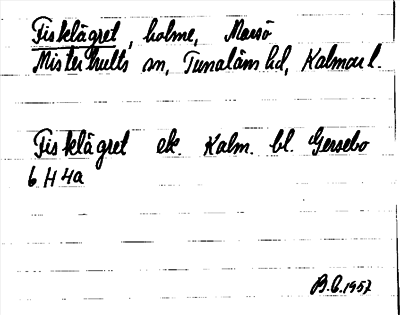 Fisklägret, holme, Marsö
Misterhults sn, Tunaläns hd, Kalmar l.
Fisklägret ek. Kalm. bl. Gersebo
6 H 4a
B.G. 1957